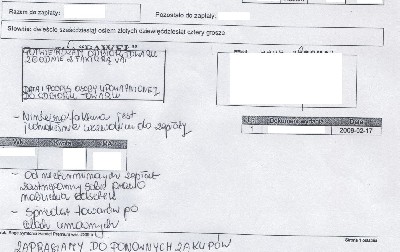 Razem do zapłaty:
Pozostało do zapłaty:
Słownie: dwieście sześćdziesiąt osiem złotych dziewięćdziesiąt cztery grosze
"PAWEŁ"
POTWIERDZAM ODBIÓR TOWARU
ZGODNIE Z FAKTURĄ VAT
DATA I PODPIS OSOBY UPOWAŻNIONEJ
DO ODBIORU TOWARU
- Niniejsza faktura jest
jednocześnie wezwaniem do zapłaty
Data
1
2009-02-17
Kwota
- Od nieterminowych zapłat
zastrzegamy sobie prawo
naliczenia odsetek
- Sprzedaż towarów po
cenach umownych
Strona 1 ostatnia
ZAPRASZAMY DO PONOWNYCH ZAKUPÓW